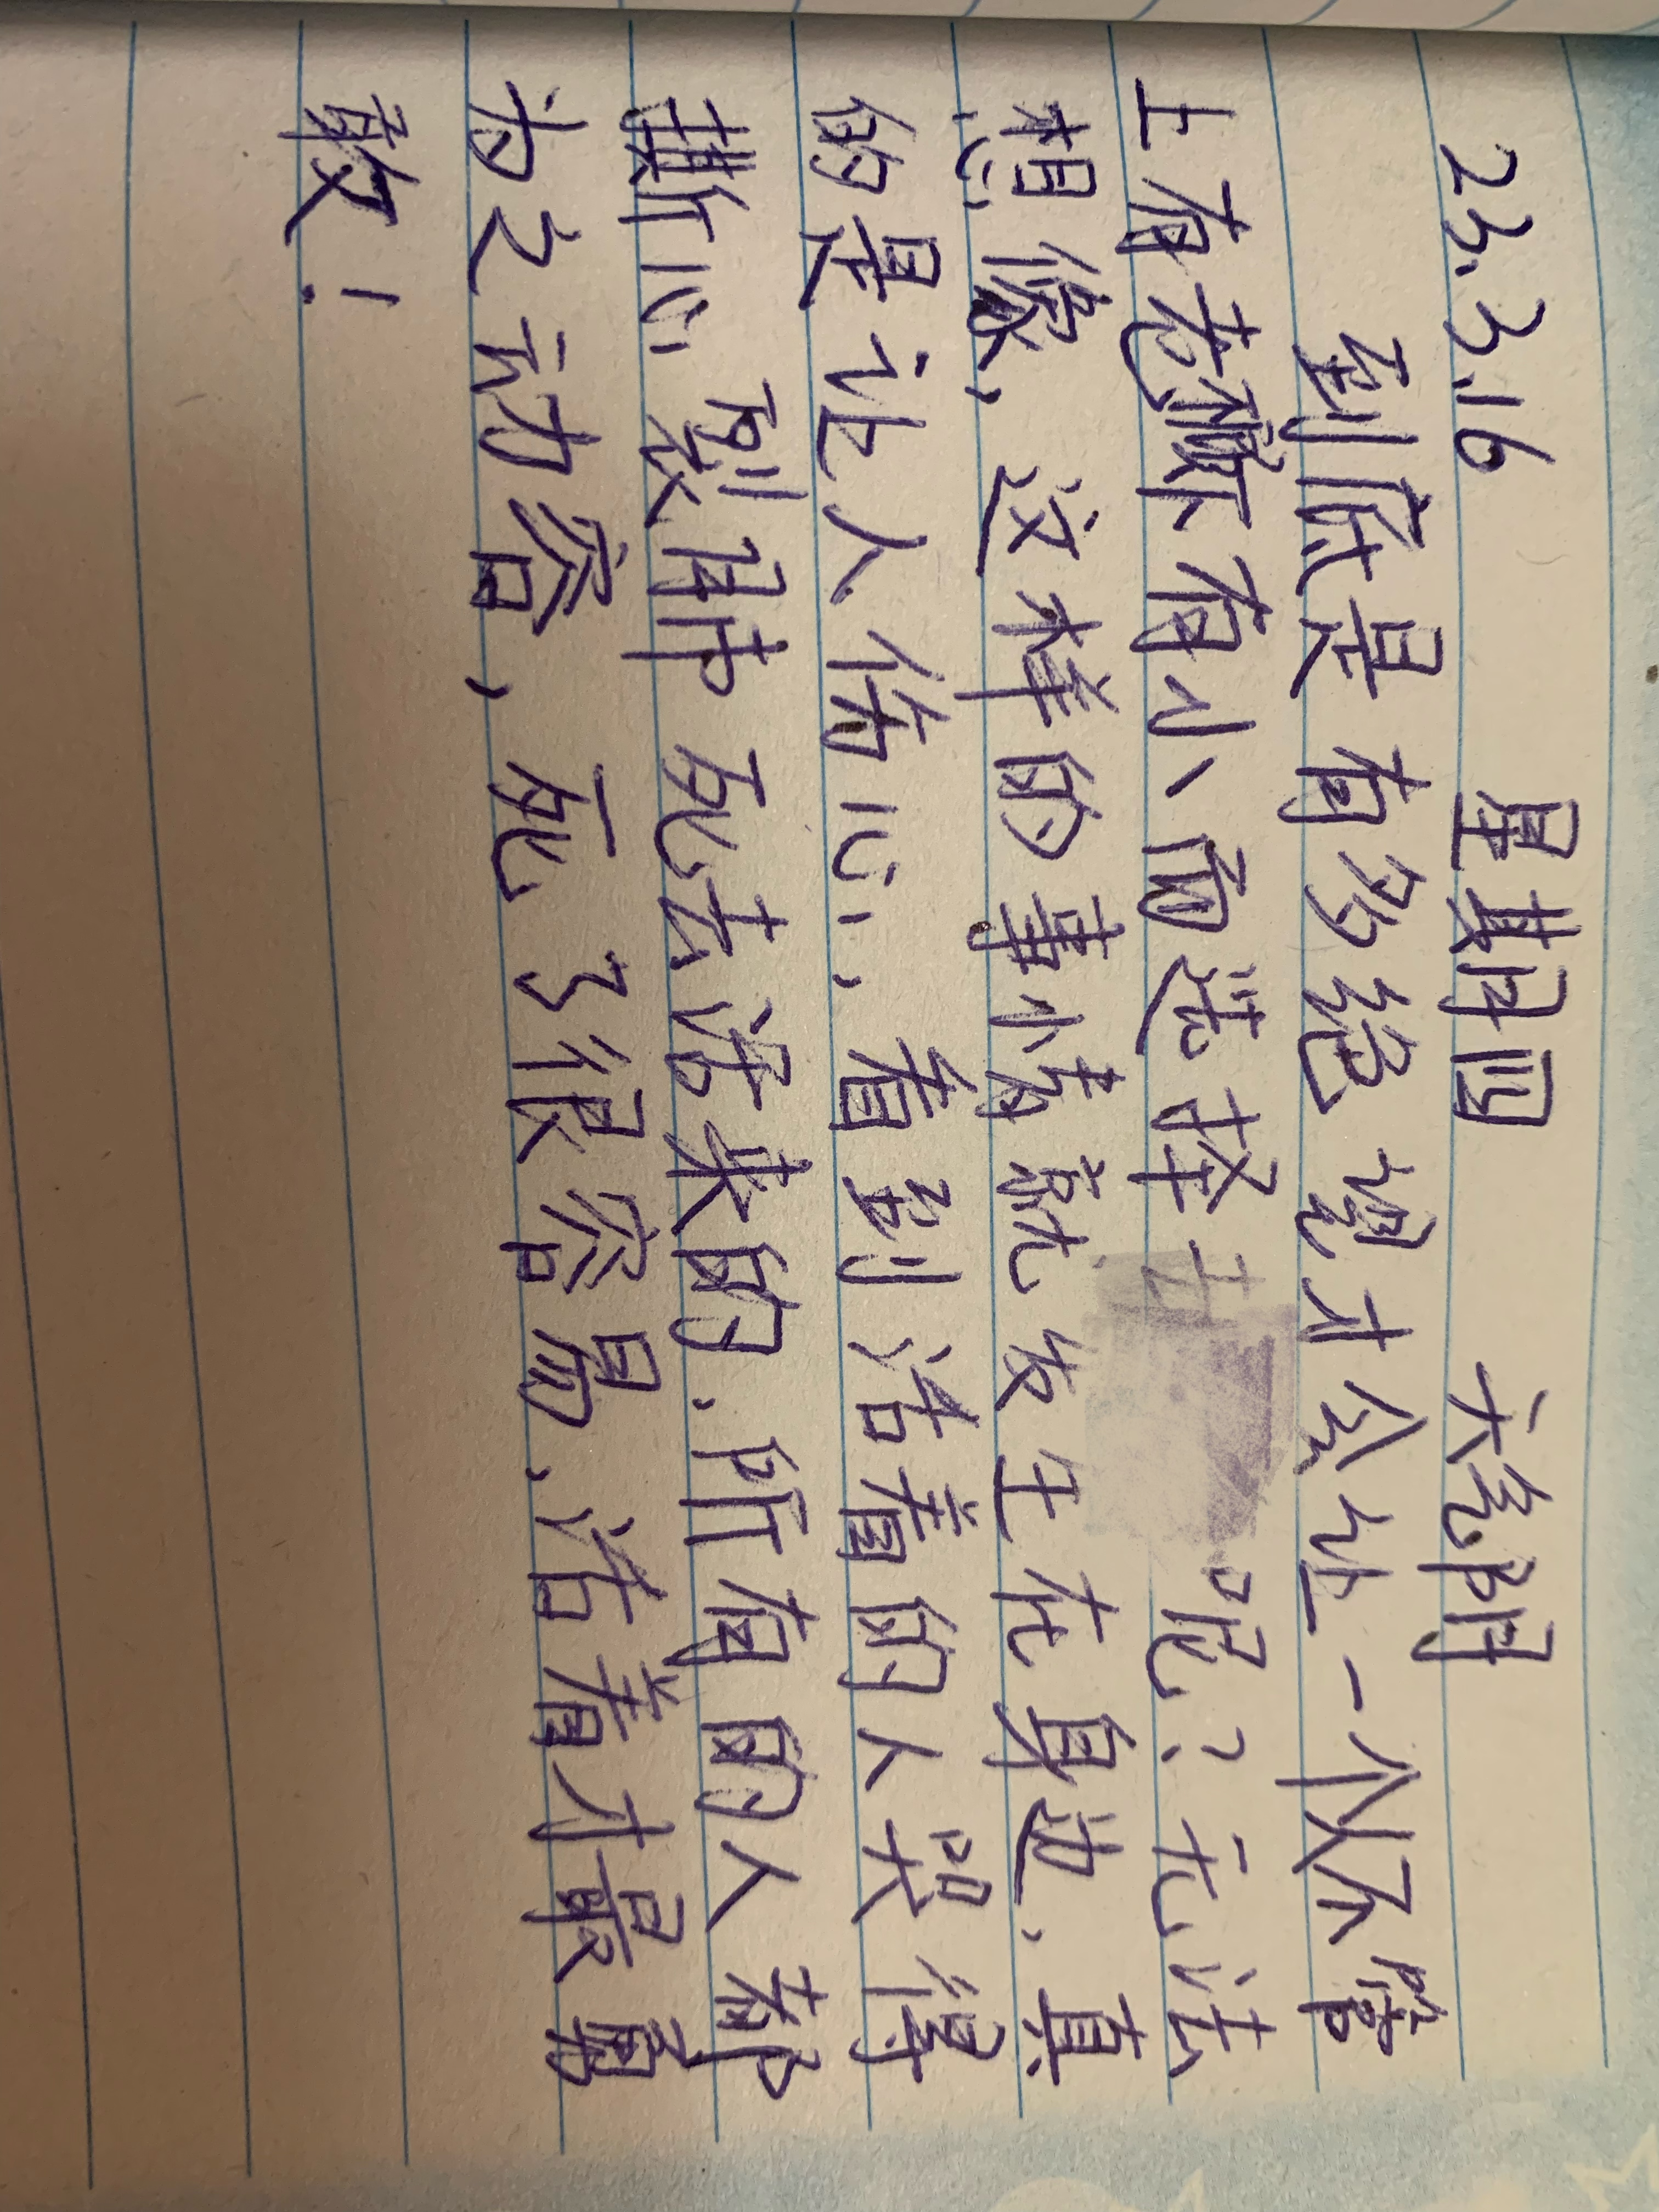 23.3.16 星期四 天气阴
到底是有多绝望才会让一个人不管
上有老下有小而选择呢?无法
想像,这样的事情就发生在身边,真
的是让人伤心,看到活着的人哭得
撕心裂肺死去活来的,所有的人都
为之动容,死了很容易,活着才最勇
敢!